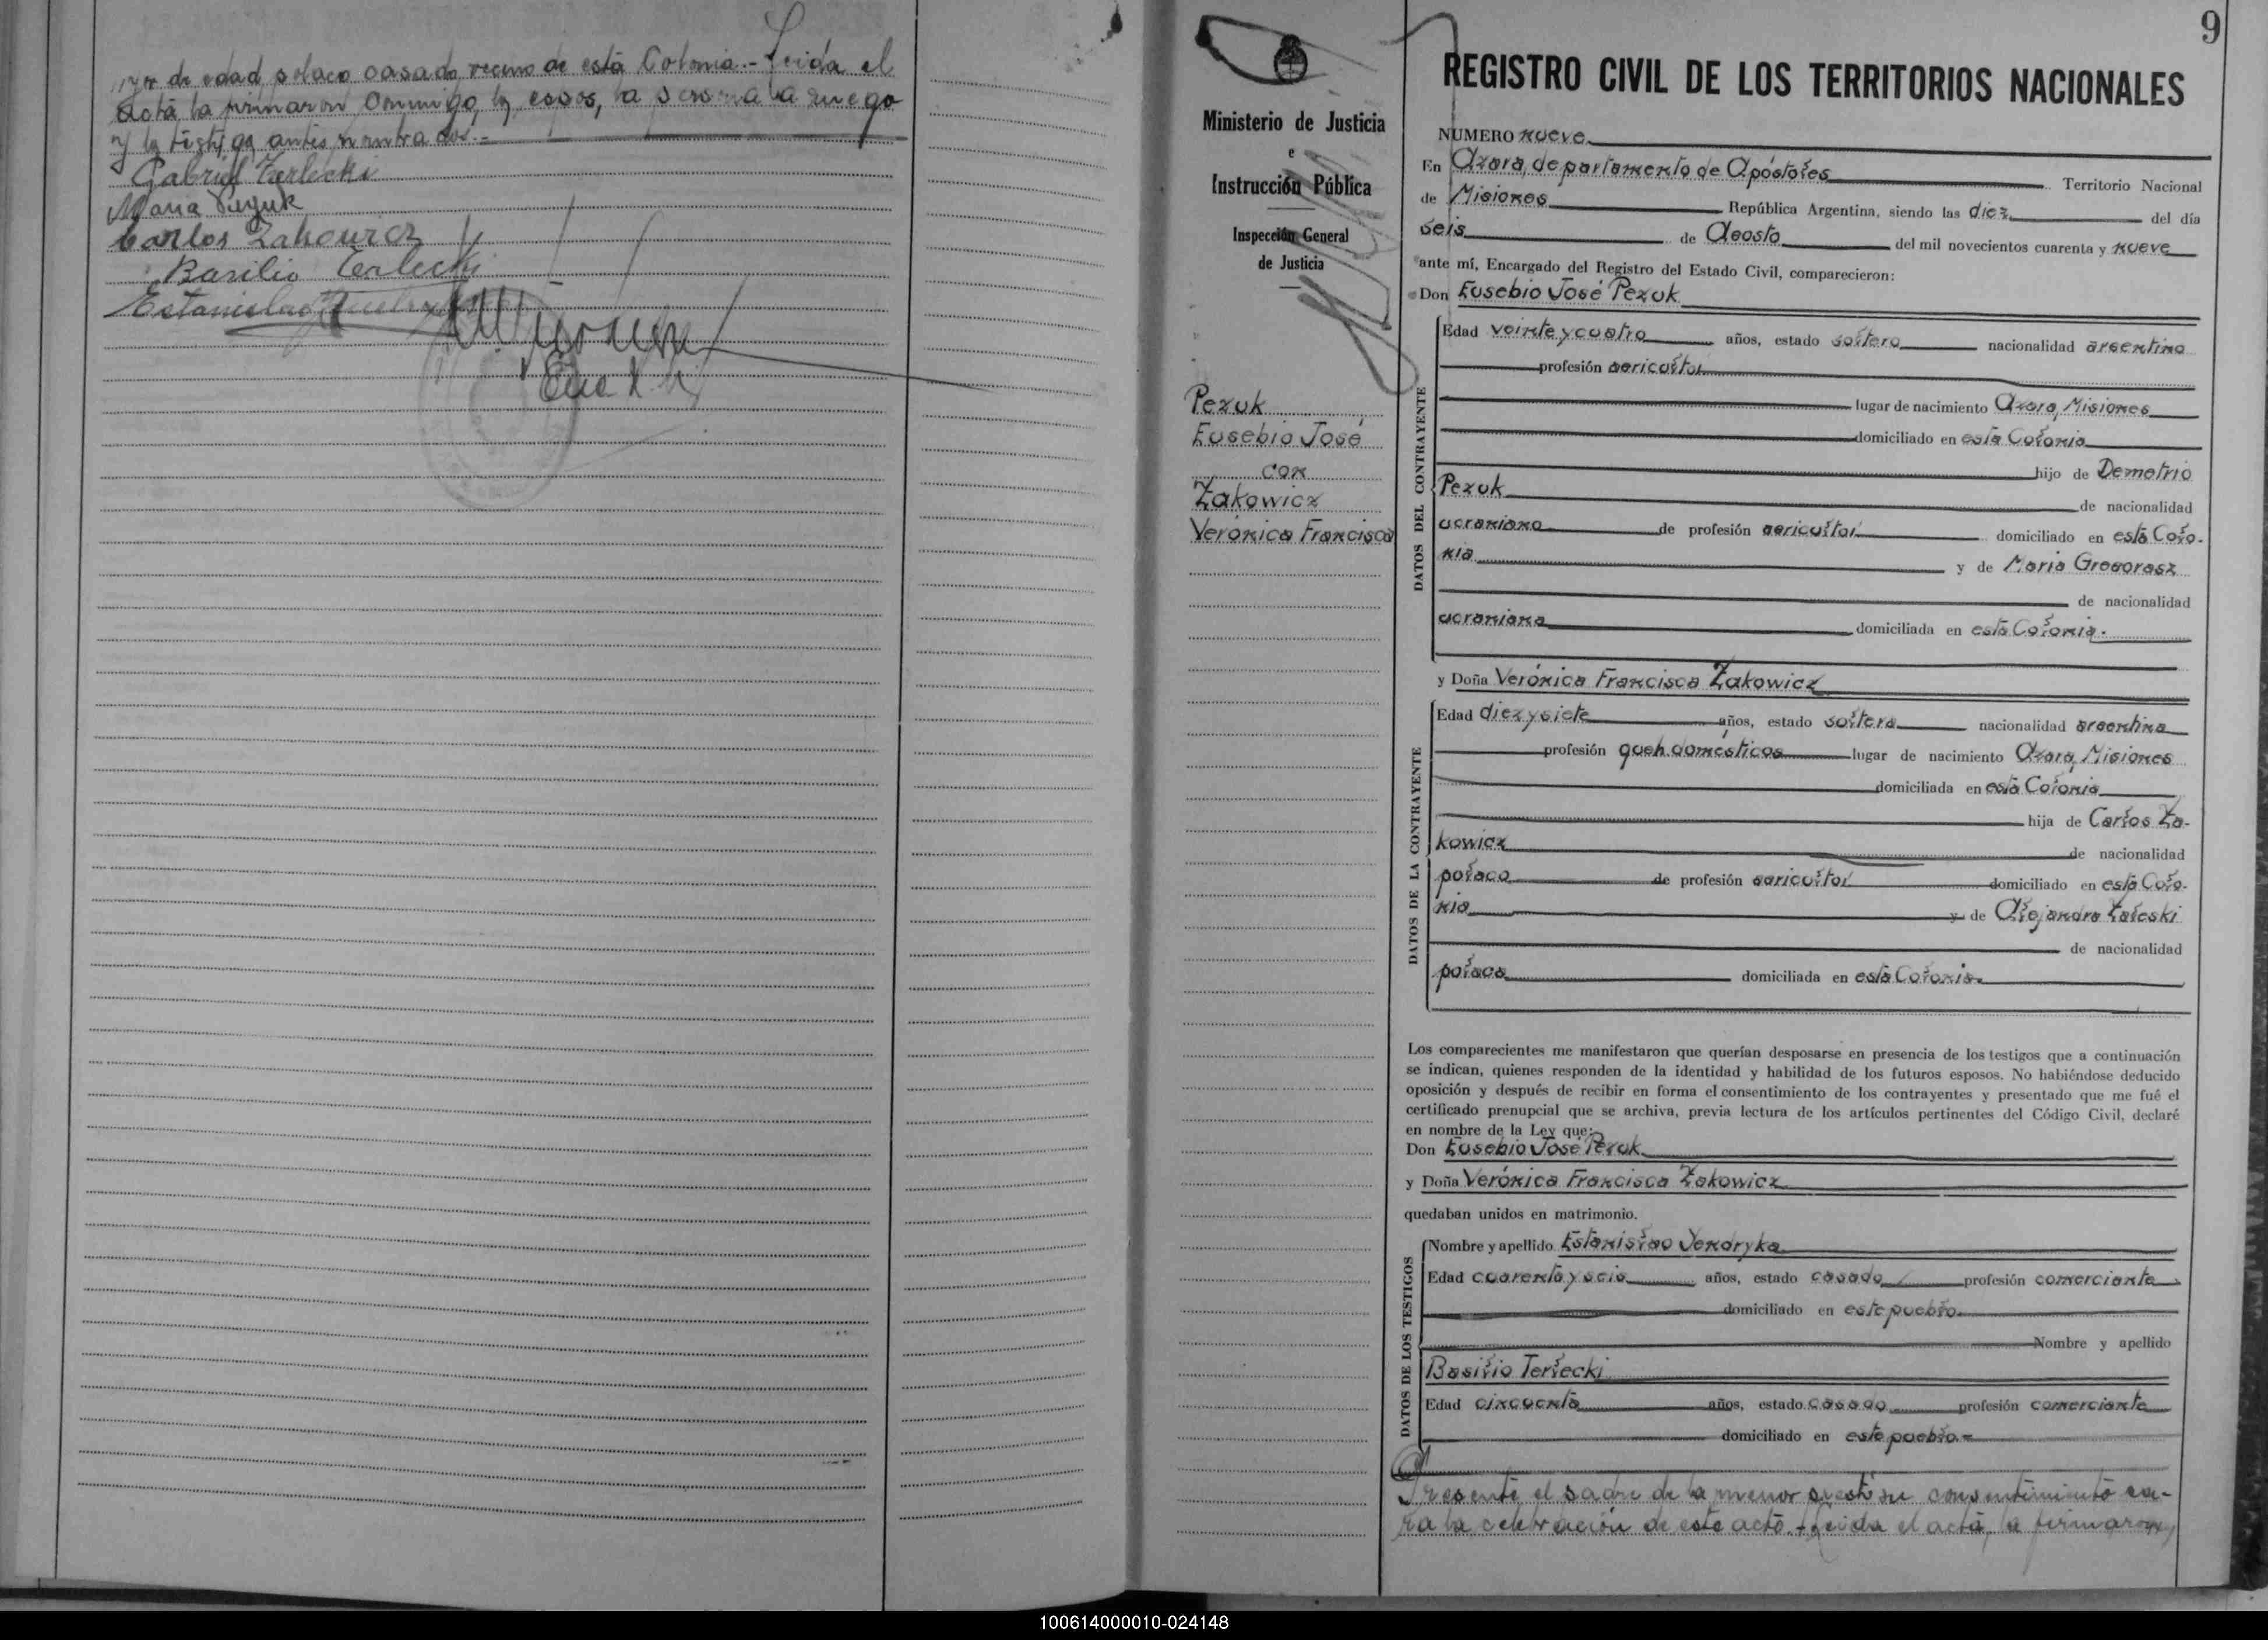 de edad polaco casado vecino de esta Colonia.- Leida el
acta la firmaron conmigo, los esposos, la persona a ruego
y los testigos antes nombrados.-
Gabriel Terlecki
Maria
Carlos Zakowicz
Basilio Terlecki
Estanislao
9
Ministerio de Justicia
e
Instrucción Pública
Inspección General
de Justicia
Pezuk
Eusebio José
con
Zakowicz
Verónica Francisca
REGISTRO CIVIL DE LOS TERRITORIOS NACIONALES
NUMERO nueve
En Azara, departamento de Apóstoles Territorio Nacional
de Misiones República Argentina, siendo las diez del día
seis de Agosto del mil novecientos cuarenta y nueve
ante mí, Encargado del Registro del Estado Civil, comparecieron:
Don Eusebio José Pezuk
DATOS DEL CONTRAYENTE
Edad veinte y cuatro años, estado soltero nacionalidad argentina
profesión agricultor
lugar de nacimiento Azara, Misiones
domiciliado en esta Colonia
hijo de Demetrio
Pezuk de nacionalidad
ucraniana de profesión agricultor domiciliado en esta Colo-
nia y de Maria Gregorasz
de nacionalidad
ucraniana domiciliada en esta Colonia.
y Doña Verónica Francisca Zakowicz
DATOS DE LA CONTRAYENTE
Edad diez y siete años, estado soltera nacionalidad argentina
profesión queh. domésticos lugar de nacimiento Azara, Misiones
domiciliada en esta Colonia
hija de Carlos Za-
kowicz de nacionalidad
polaco de profesión agricultor domiciliado en esta Colo-
nia y de Alejandra Zaleski
de nacionalidad
polaca domiciliada en esta Colonia.
Los comparecientes me manifestaron que querían desposarse en presencia de los testigos que a continuación
se indican, quienes responden de la identidad y habilidad de los futuros esposos. No habiéndose deducido
oposición y después de recibir en forma el consentimiento de los contrayentes y presentado que me fué el
certificado prenupcial que se archiva, previa lectura de los artículos pertinentes del Código Civil, declaré
en nombre de la Ley que:
Don Eusebio José Pezuk
y Doña Verónica Francisca Zakowicz
quedaban unidos en matrimonio.
DATOS DE LOS TESTIGOS
Nombre y apellido Estanislao Jendryka
Edad cuarenta y seis años, estado casado profesión comerciante
domiciliado en este pueblo
Nombre y apellido
Basilio Terlecki
Edad cincuenta años, estado casado profesión comerciante
domiciliado en este pueblo.-
Presente el padre de la menor prestó su consentimiento pa-
ra la celebración de este acto.- Leida el acta, la firmaron,
100614000010-024148